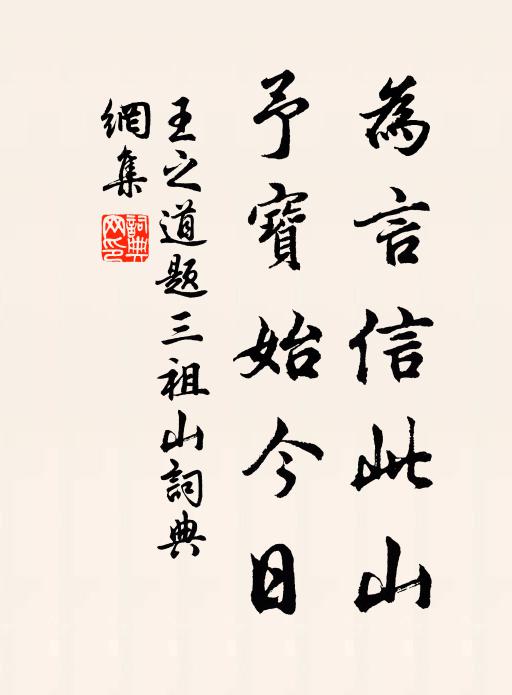 為言信此山
予寶始今日
王之道題三祖山詞典
網集
詞典網印